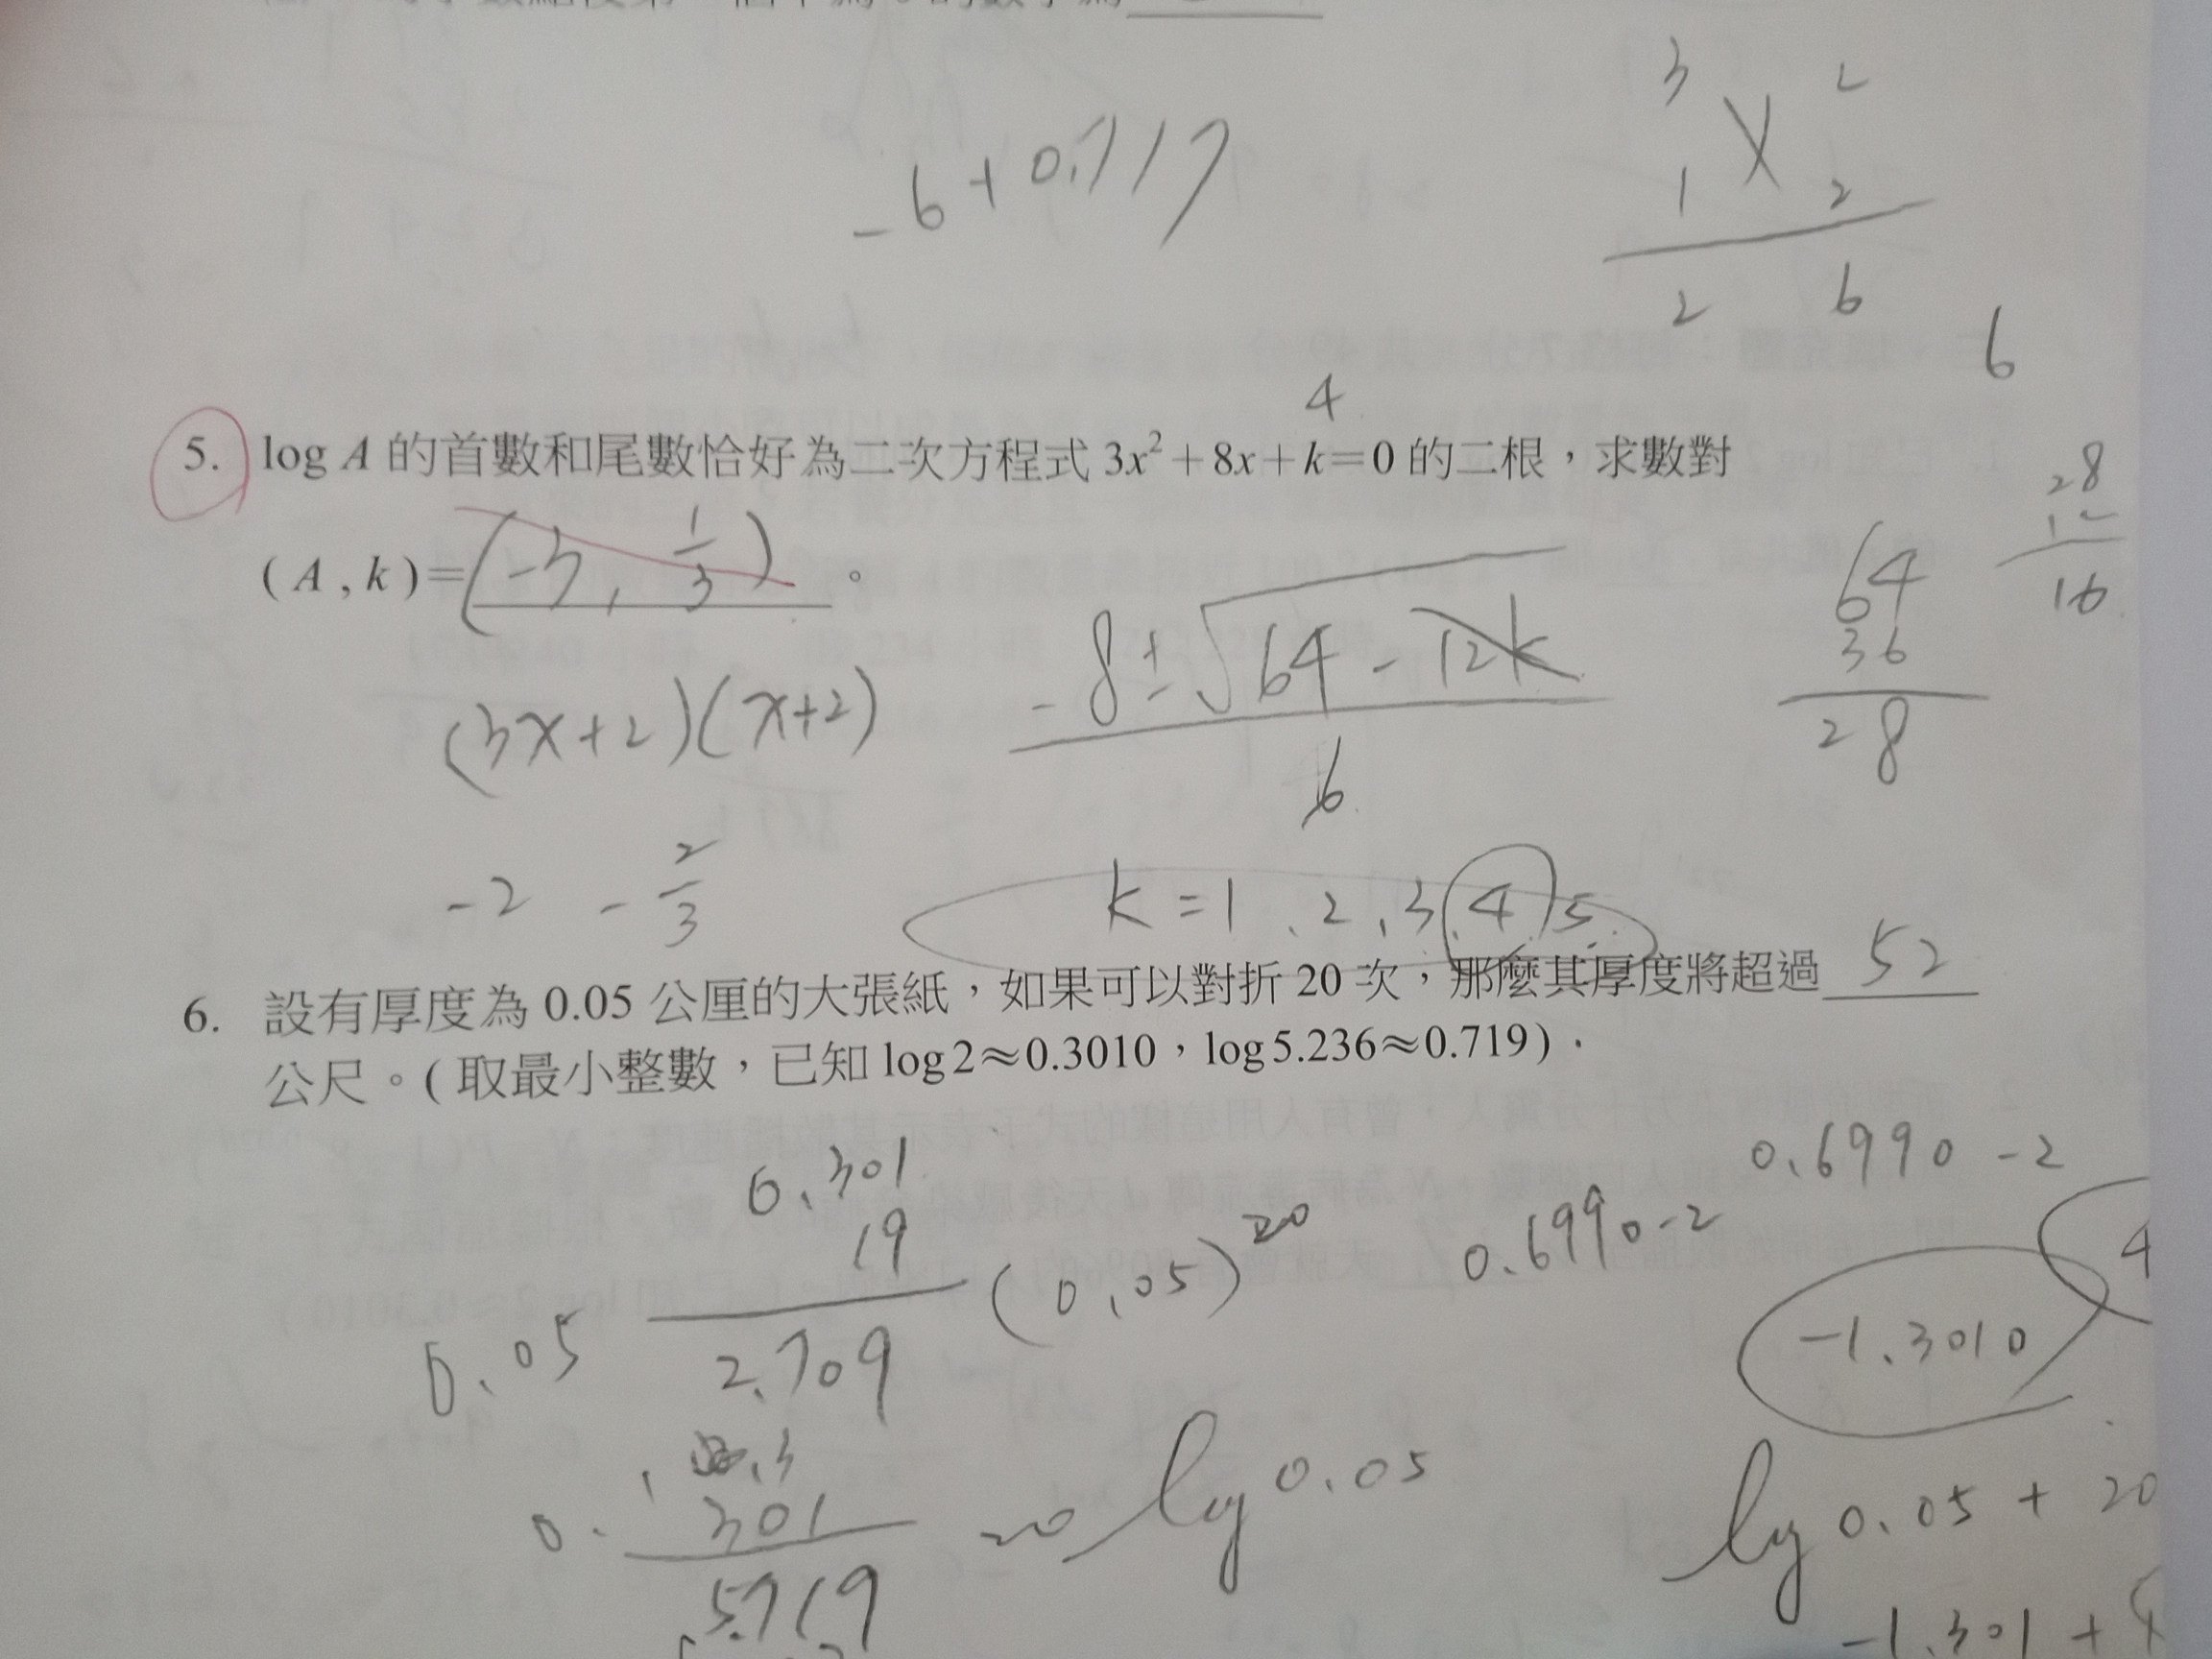 -6+0.717
3 2
1 2
2 6
6
4
5. log A 的首數和尾數恰好為二次方程式 3x²+8x+k=0 的二根，求數對
(A,k)=(-3, 1/3)。
28
12
16
64
36
28
(3x+2)(x+2)
-8±√64-12k
6
-2 -2/3
k=1、2,3,4,5
6. 設有厚度為 0.05 公厘的大張紙，如果可以對折 20 次，那麼其厚度將超過 52
公尺。(取最小整數，已知 log2≈0.3010，log5.236≈0.719)．
0.301
19
2.709
301
5.719
0.05
(0.05)²⁰
0.6990-2
0.6990-2
4
-1.3010
20 log 0.05
log 0.05 + 20
-1.301 +